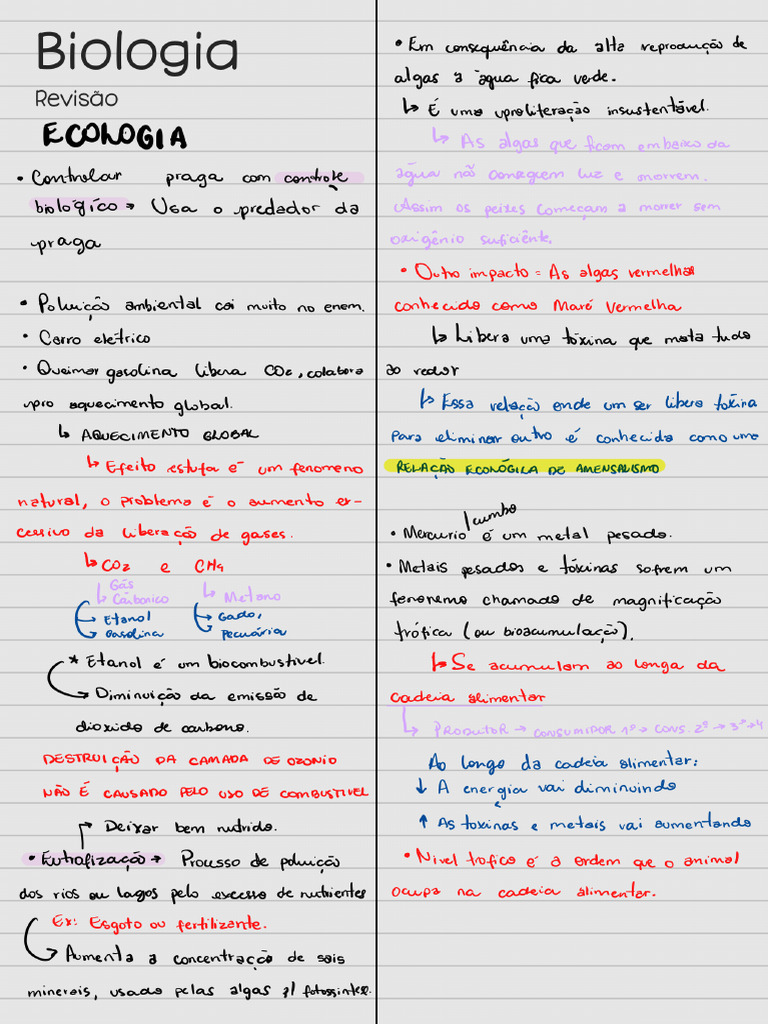 Biologia
Revisão
ECOLOGIA
• Controlar praga com controle
biológico → Usa o predador da
praga
• Poluição ambiental cai muito no enem.
• Carro elétrico
• Queimar gasolina libera CO2, colabora
pro aquecimento global.
↳ AQUECIMENTO GLOBAL
↳ Efeito estufa é um fenomeno
natural, o problema é o aumento ex-
cessivo da liberação de gases.
↳ CO2 e CH4
Gás
↳ Carbonico ↳ Metano
→ Etanol → Gado,
→ Gasolina → Pecuária
* Etanol é um biocombustivel.
→ Diminuição da emissão de
dioxido de carbono.
DESTRUIÇÃO DA CAMADA DE OZONIO
NÃO É CAUSADO PELO USO DE COMBUSTIVEL
→ Deixar bem nutrido.
• Eutrofização → Processo de poluição
dos rios ou lagos pelo excesso de nutrientes
Ex: Esgoto ou fertilizante.
→ Aumenta a concentração de sais
minerais, usado pelas algas p/ fotossíntese.
• Em consequência da alta reprodução de
algas a água fica verde.
↳ É uma proliteração insustentável.
↳ As algas que ficam embaixo da
água não conseguem luz e morrem.
Assim os peixes começam a morrer sem
oxigênio suficiênte.
• Outro impacto = As algas vermelhas
conhecida como Maré Vermelha
↳ Libera uma tóxina que mata tudo
ao redor
↳ Essa relação onde um ser libera toxina
para eliminar outro é conhecida como uma
RELAÇÃO ECOLÓGICA DE AMENSALISMO
• Mercurio /cumbo é um metal pesado.
• Metais pesados e tóxinas sofrem um
fenoremo chamado de magnificação
trófica (ou bioacumulação).
↳ Se acumulam ao longa da
cadeia alimentar
↳ PRODUTOR → CONSUMIDOR 1º → CONS. 2º → 3º → 4
Ao longo da cadeia alimentar:
↓ A energia vai diminuindo
↑ As toxinas e metais vai aumentando
• Nivel trofico é a ordem que o animal
ocupa na cadeia alimentar.